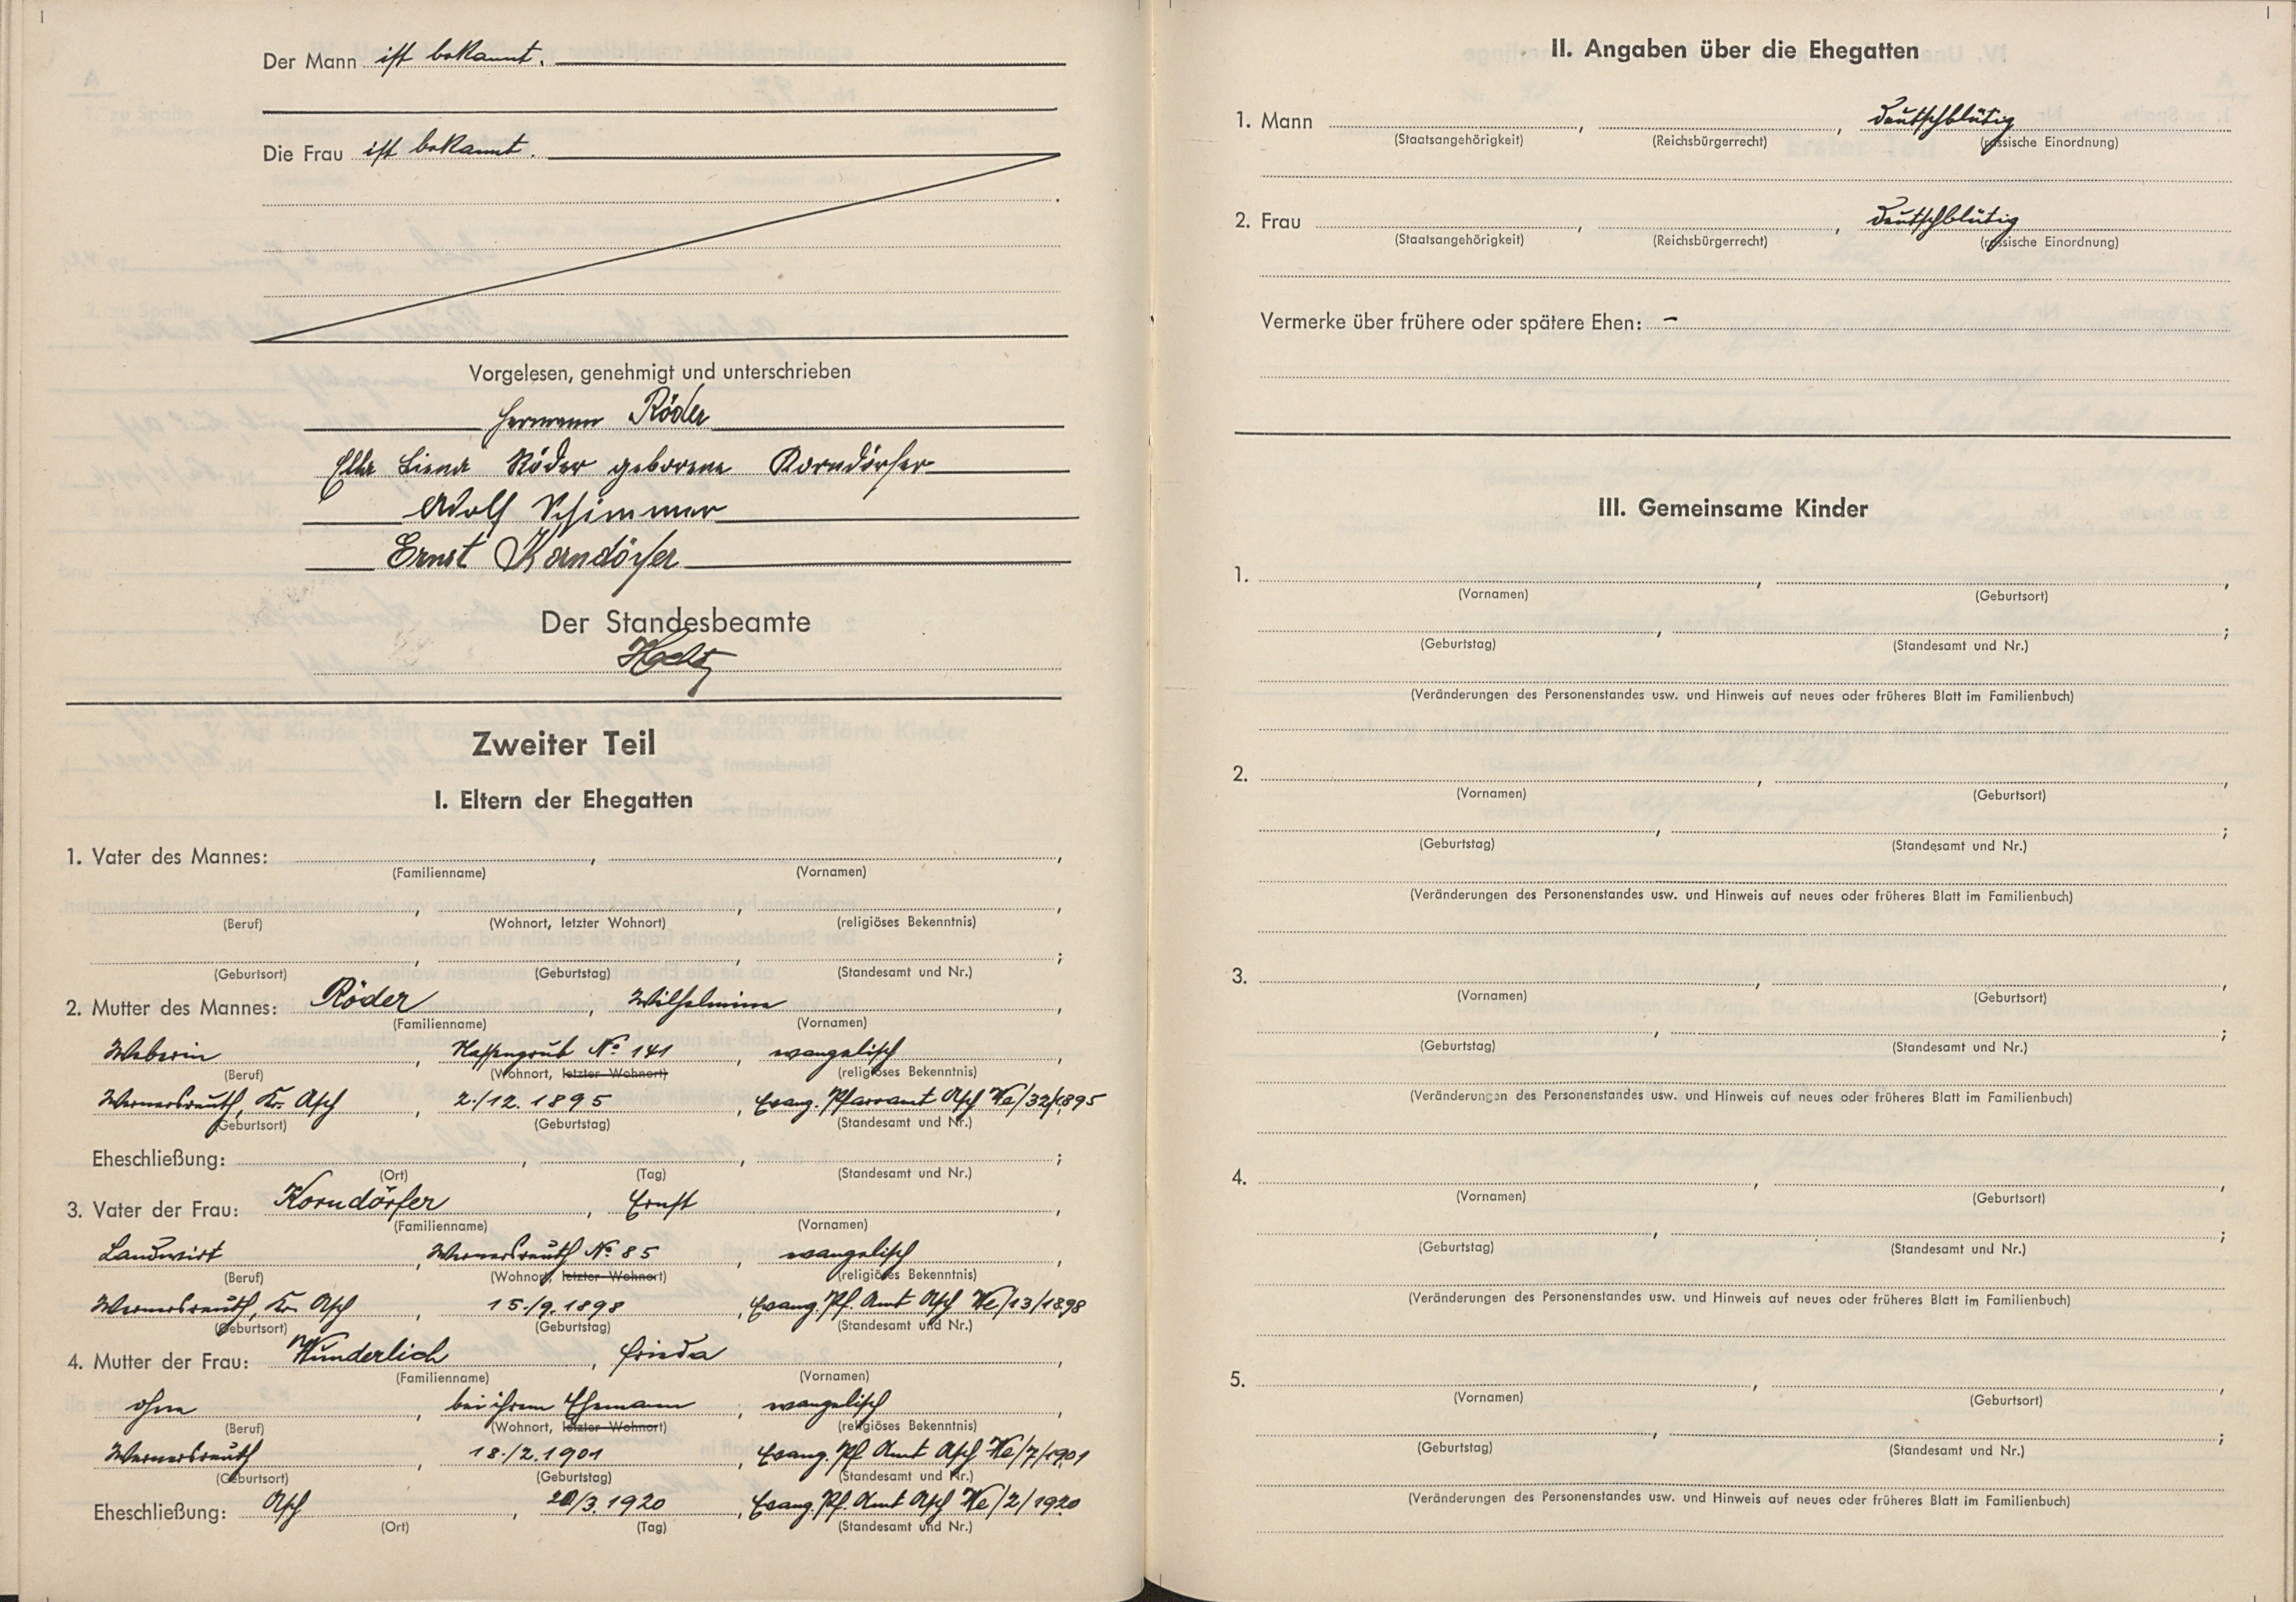 Der Mann ist bekannt.
Die Frau ist bekannt.
Vorgelesen, genehmigt und unterschrieben
Hermann Röder
Ella Liena Röder geborene Korndörfer
Adolf Schimmer
Ernst Korndörfer
Der Standesbeamte
Zweiter Teil
I. Eltern der Ehegatten
1. Vater des Mannes: , ,
(Familienname) (Vornamen)
, , ,
(Beruf) (Wohnort, letzter Wohnort) (religiöses Bekenntnis)
, , ;
(Geburtsort) (Geburtstag) (Standesamt und Nr.)
2. Mutter des Mannes: Röder, Wilhelmine,
(Familienname) (Vornamen)
Weberin, Hassengrub No 141, evangelisch,
(Beruf) (Wohnort, letzter Wohnort) (religiöses Bekenntnis)
Wernersreuth, Kr. Asch, 2./12. 1895, Evang. Pfarramt Asch We/32/1895;
(Geburtsort) (Geburtstag) (Standesamt und Nr.)
Eheschließung: , , ;
(Ort) (Tag) (Standesamt und Nr.)
3. Vater der Frau: Korndörfer, Ernst,
(Familienname) (Vornamen)
Landwirt, Wernersreuth No 85, evangelisch,
(Beruf) (Wohnort, letzter Wohnort) (religiöses Bekenntnis)
Wernersreuth, Kr. Asch, 15./9. 1898, Evang. Pf. Amt Asch We/13/1898
(Geburtsort) (Geburtstag) (Standesamt und Nr.)
4. Mutter der Frau: Wunderlich, Frieda,
(Familienname) (Vornamen)
ohne, bei ihrem Ehemann, evangelisch,
(Beruf) (Wohnort, letzter Wohnort) (religiöses Bekenntnis)
Wernersreuth, 18./2. 1901, Evang. Pf. Amt Asch We/7/1901
(Geburtsort) (Geburtstag) (Standesamt und Nr.)
Eheschließung: Asch, /3. 1920, Evang. Pf. Amt Asch We/2/1920
(Ort) (Tag) (Standesamt und Nr.)
II. Angaben über die Ehegatten
1. Mann , , deutschblütig
(Staatsangehörigkeit) (Reichsbürgerrecht) (rassische Einordnung)
2. Frau , , deutschblütig
(Staatsangehörigkeit) (Reichsbürgerrecht) (rassische Einordnung)
Vermerke über frühere oder spätere Ehen: –
III. Gemeinsame Kinder
1. , ,
(Vornamen) (Geburtsort)
, ;
(Geburtstag) (Standesamt und Nr.)
(Veränderungen des Personenstandes usw. und Hinweis auf neues oder früheres Blatt im Familienbuch)
2. , ,
(Vornamen) (Geburtsort)
, ;
(Geburtstag) (Standesamt und Nr.)
(Veränderungen des Personenstandes usw. und Hinweis auf neues oder früheres Blatt im Familienbuch)
3. , ,
(Vornamen) (Geburtsort)
, ;
(Geburtstag) (Standesamt und Nr.)
(Veränderungen des Personenstandes usw. und Hinweis auf neues oder früheres Blatt im Familienbuch)
4. , ,
(Vornamen) (Geburtsort)
, ;
(Geburtstag) (Standesamt und Nr.)
(Veränderungen des Personenstandes usw. und Hinweis auf neues oder früheres Blatt im Familienbuch)
5. , ,
(Vornamen) (Geburtsort)
, ;
(Geburtstag) (Standesamt und Nr.)
(Veränderungen des Personenstandes usw. und Hinweis auf neues oder früheres Blatt im Familienbuch)